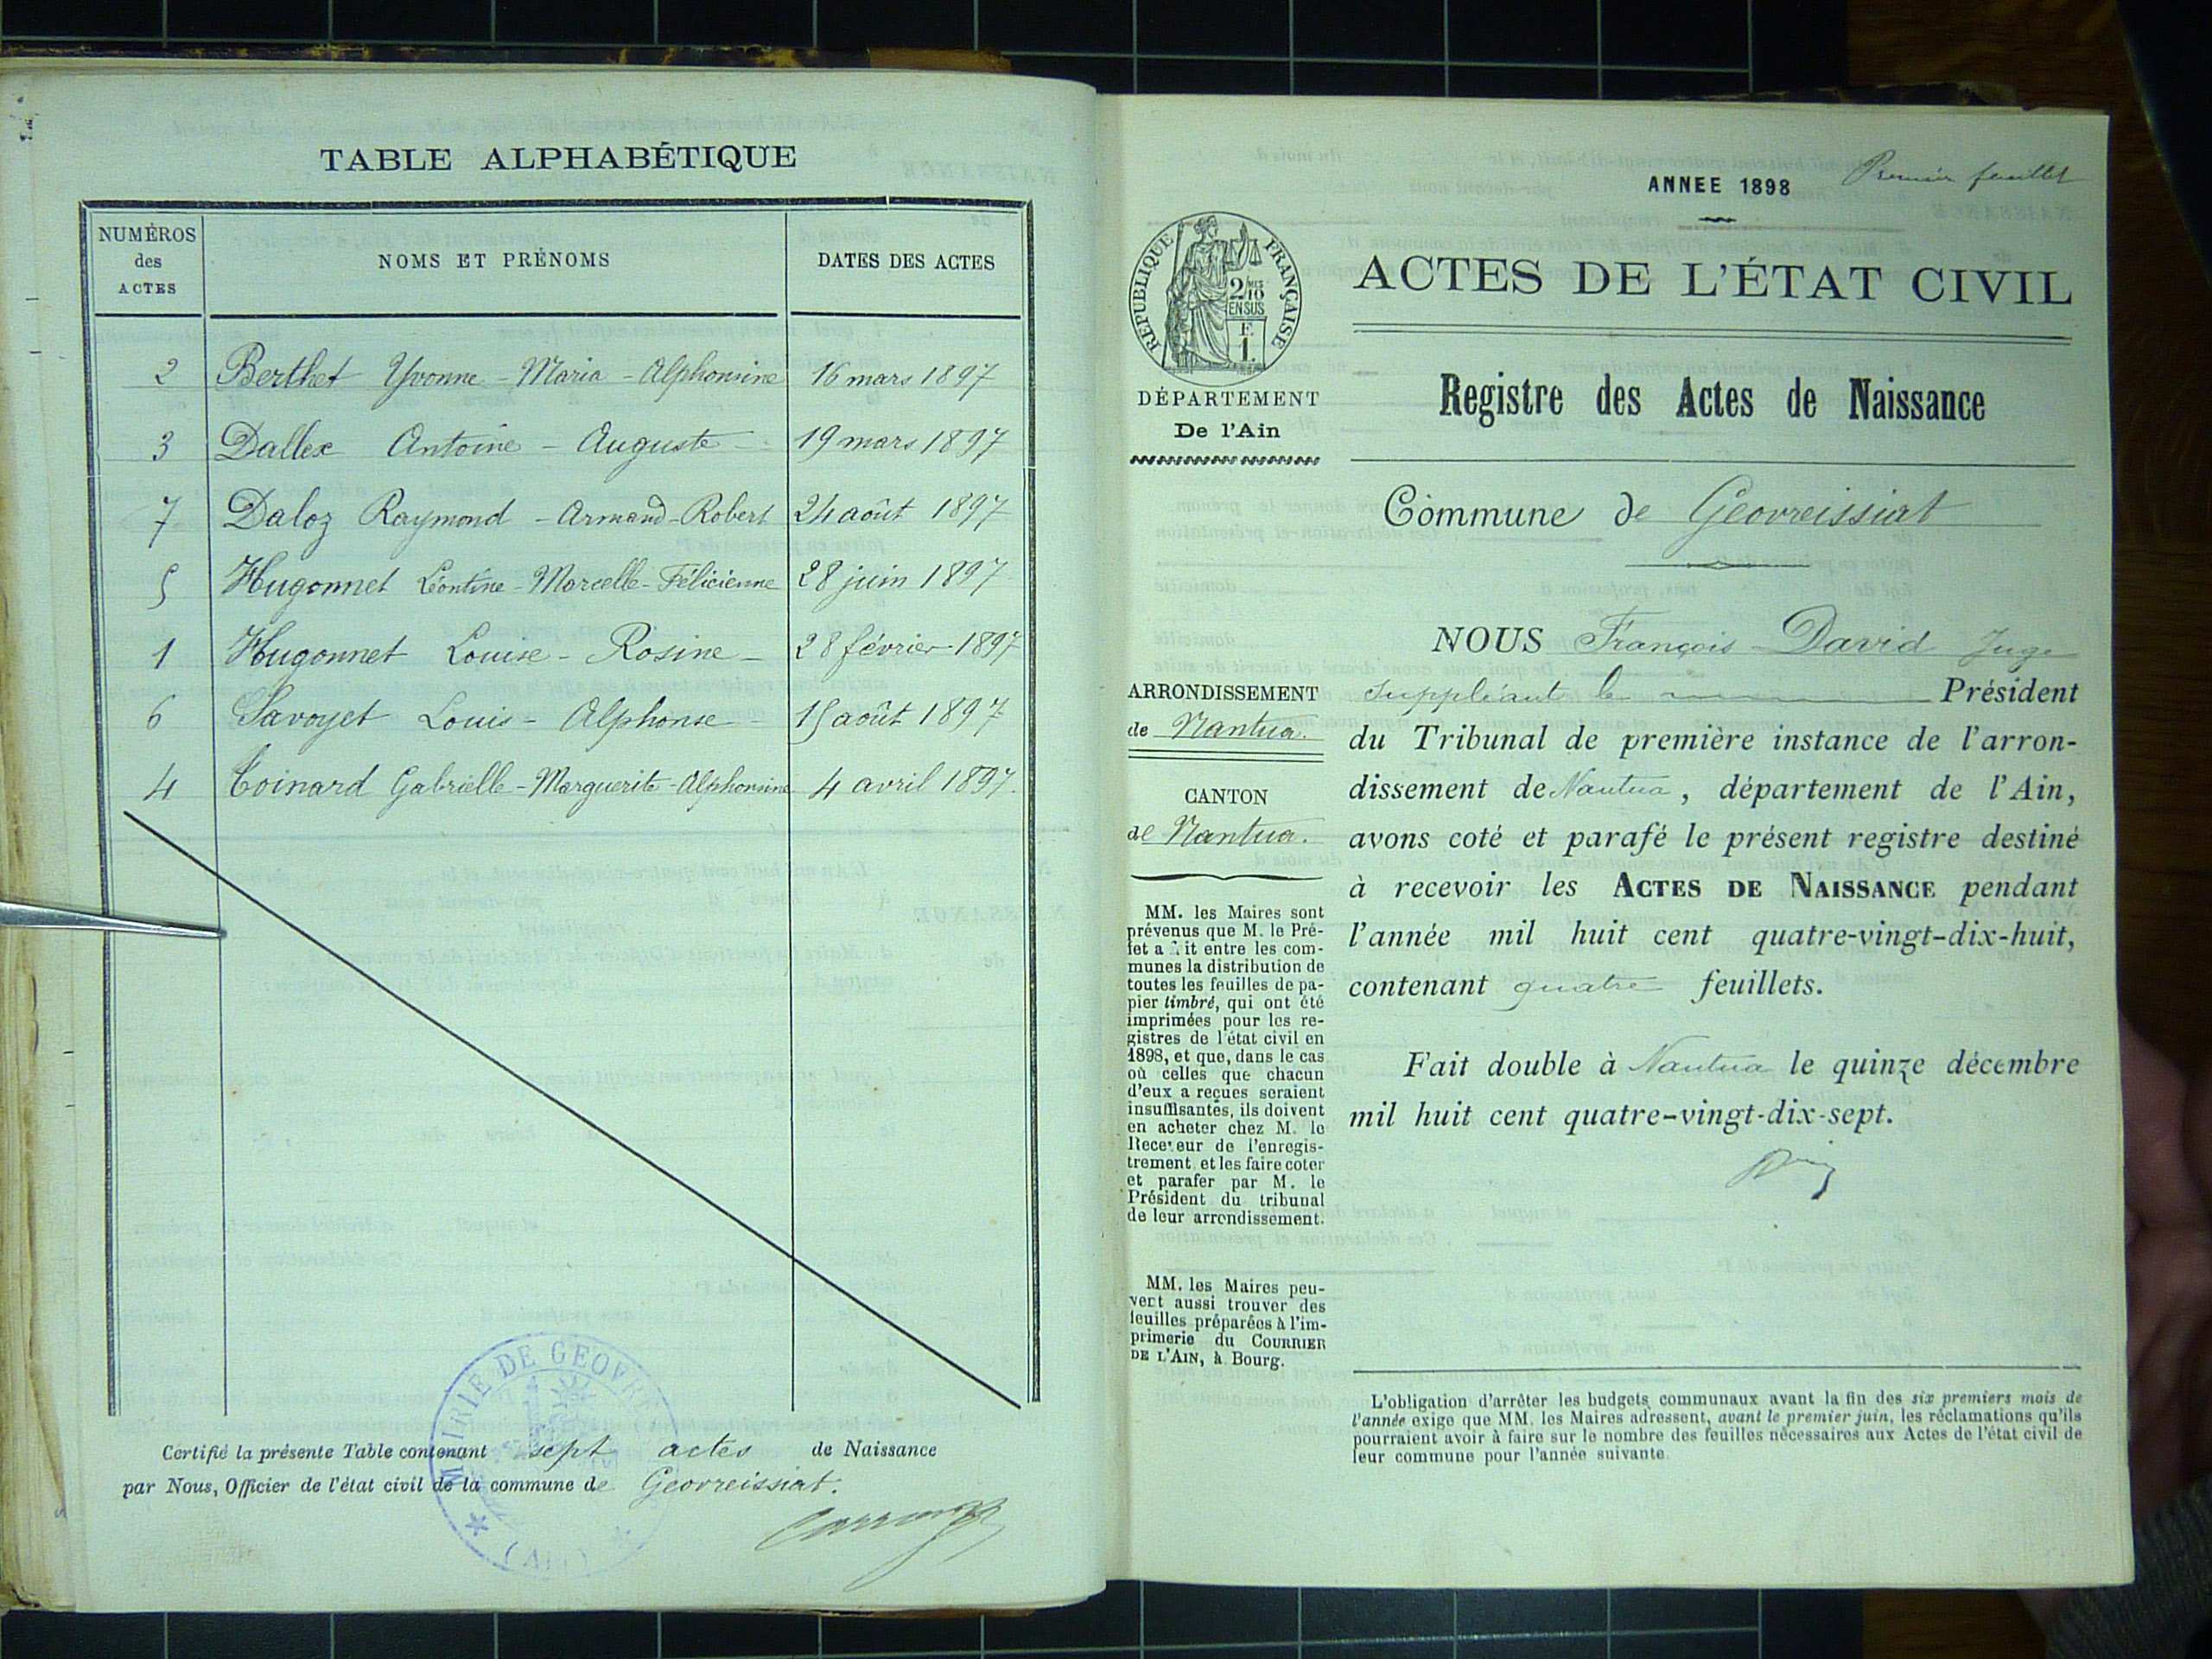 TABLE ALPHABÉTIQUE
NUMÉROS des ACTES
NOMS ET PRÉNOMS
DATES DES ACTES
2 Berthet Yvonne - Maria - Alphonsine 16 mars 1897
3 Dallex Antoine - Auguste - 19 mars 1897
7 Daloz Raymond - Armand - Robert 24 août 1897
5 Hugonnet Léontine - Marcelle - Félicienne 28 juin 1897
1 Hugonnet Louise - Rosine - 28 février 1897
6 Savoyet Louis - Alphonse - 15 août 1897
4 Toinard Gabrielle - Marguerite - Alphonsine 4 avril 1897.
Certifié la présente Table contenant sept actes de Naissance
par Nous, Officier de l'état civil de la commune de Geovreissiat.
MAIRIE DE GEOVRE
(AIN)
Premier feuillet
ANNEE 1898
REPUBLIQUE FRANÇAISE
2/10 MES
EN SUS
F.
1.
ACTES DE L'ÉTAT CIVIL
DÉPARTEMENT
De l'Ain
Registre des Actes de Naissance
Commune de Geovreissiat
ARRONDISSEMENT
de Nantua.
CANTON
de Nantua.
MM. les Maires sont
prévenus que M. le Pré-
fet a it entre les com-
munes la distribution de
toutes les feuilles de pa-
pier timbré, qui ont été
imprimées pour les re-
gistres de l'état civil en
1898, et que, dans le cas
où celles que chacun
d'eux a reçues seraient
insuffisantes, ils doivent
en acheter chez M. le
Receveur de l'enregis-
trement et les faire coter
et parafer par M. le
Président du tribunal
de leur arrondissement.
MM. les Maires peu-
vent aussi trouver des
feuilles préparées à l'im-
primerie du COURRIER
DE L'AIN, à Bourg.
NOUS François David Juge
suppléant le Président
du Tribunal de première instance de l'arron-
dissement de Nantua, département de l'Ain,
avons coté et parafé le présent registre destiné
à recevoir les ACTES DE NAISSANCE pendant
l'année mil huit cent quatre-vingt-dix-huit,
contenant quatre feuillets.
Fait double à Nantua le quinze décembre
mil huit cent quatre-vingt-dix-sept.
L'obligation d'arrêter les budgets communaux avant la fin des six premiers mois de
l'année exige que MM. les Maires adressent, avant le premier juin, les réclamations qu'ils
pourraient avoir à faire sur le nombre des feuilles nécessaires aux Actes de l'état civil de
leur commune pour l'année suivante.